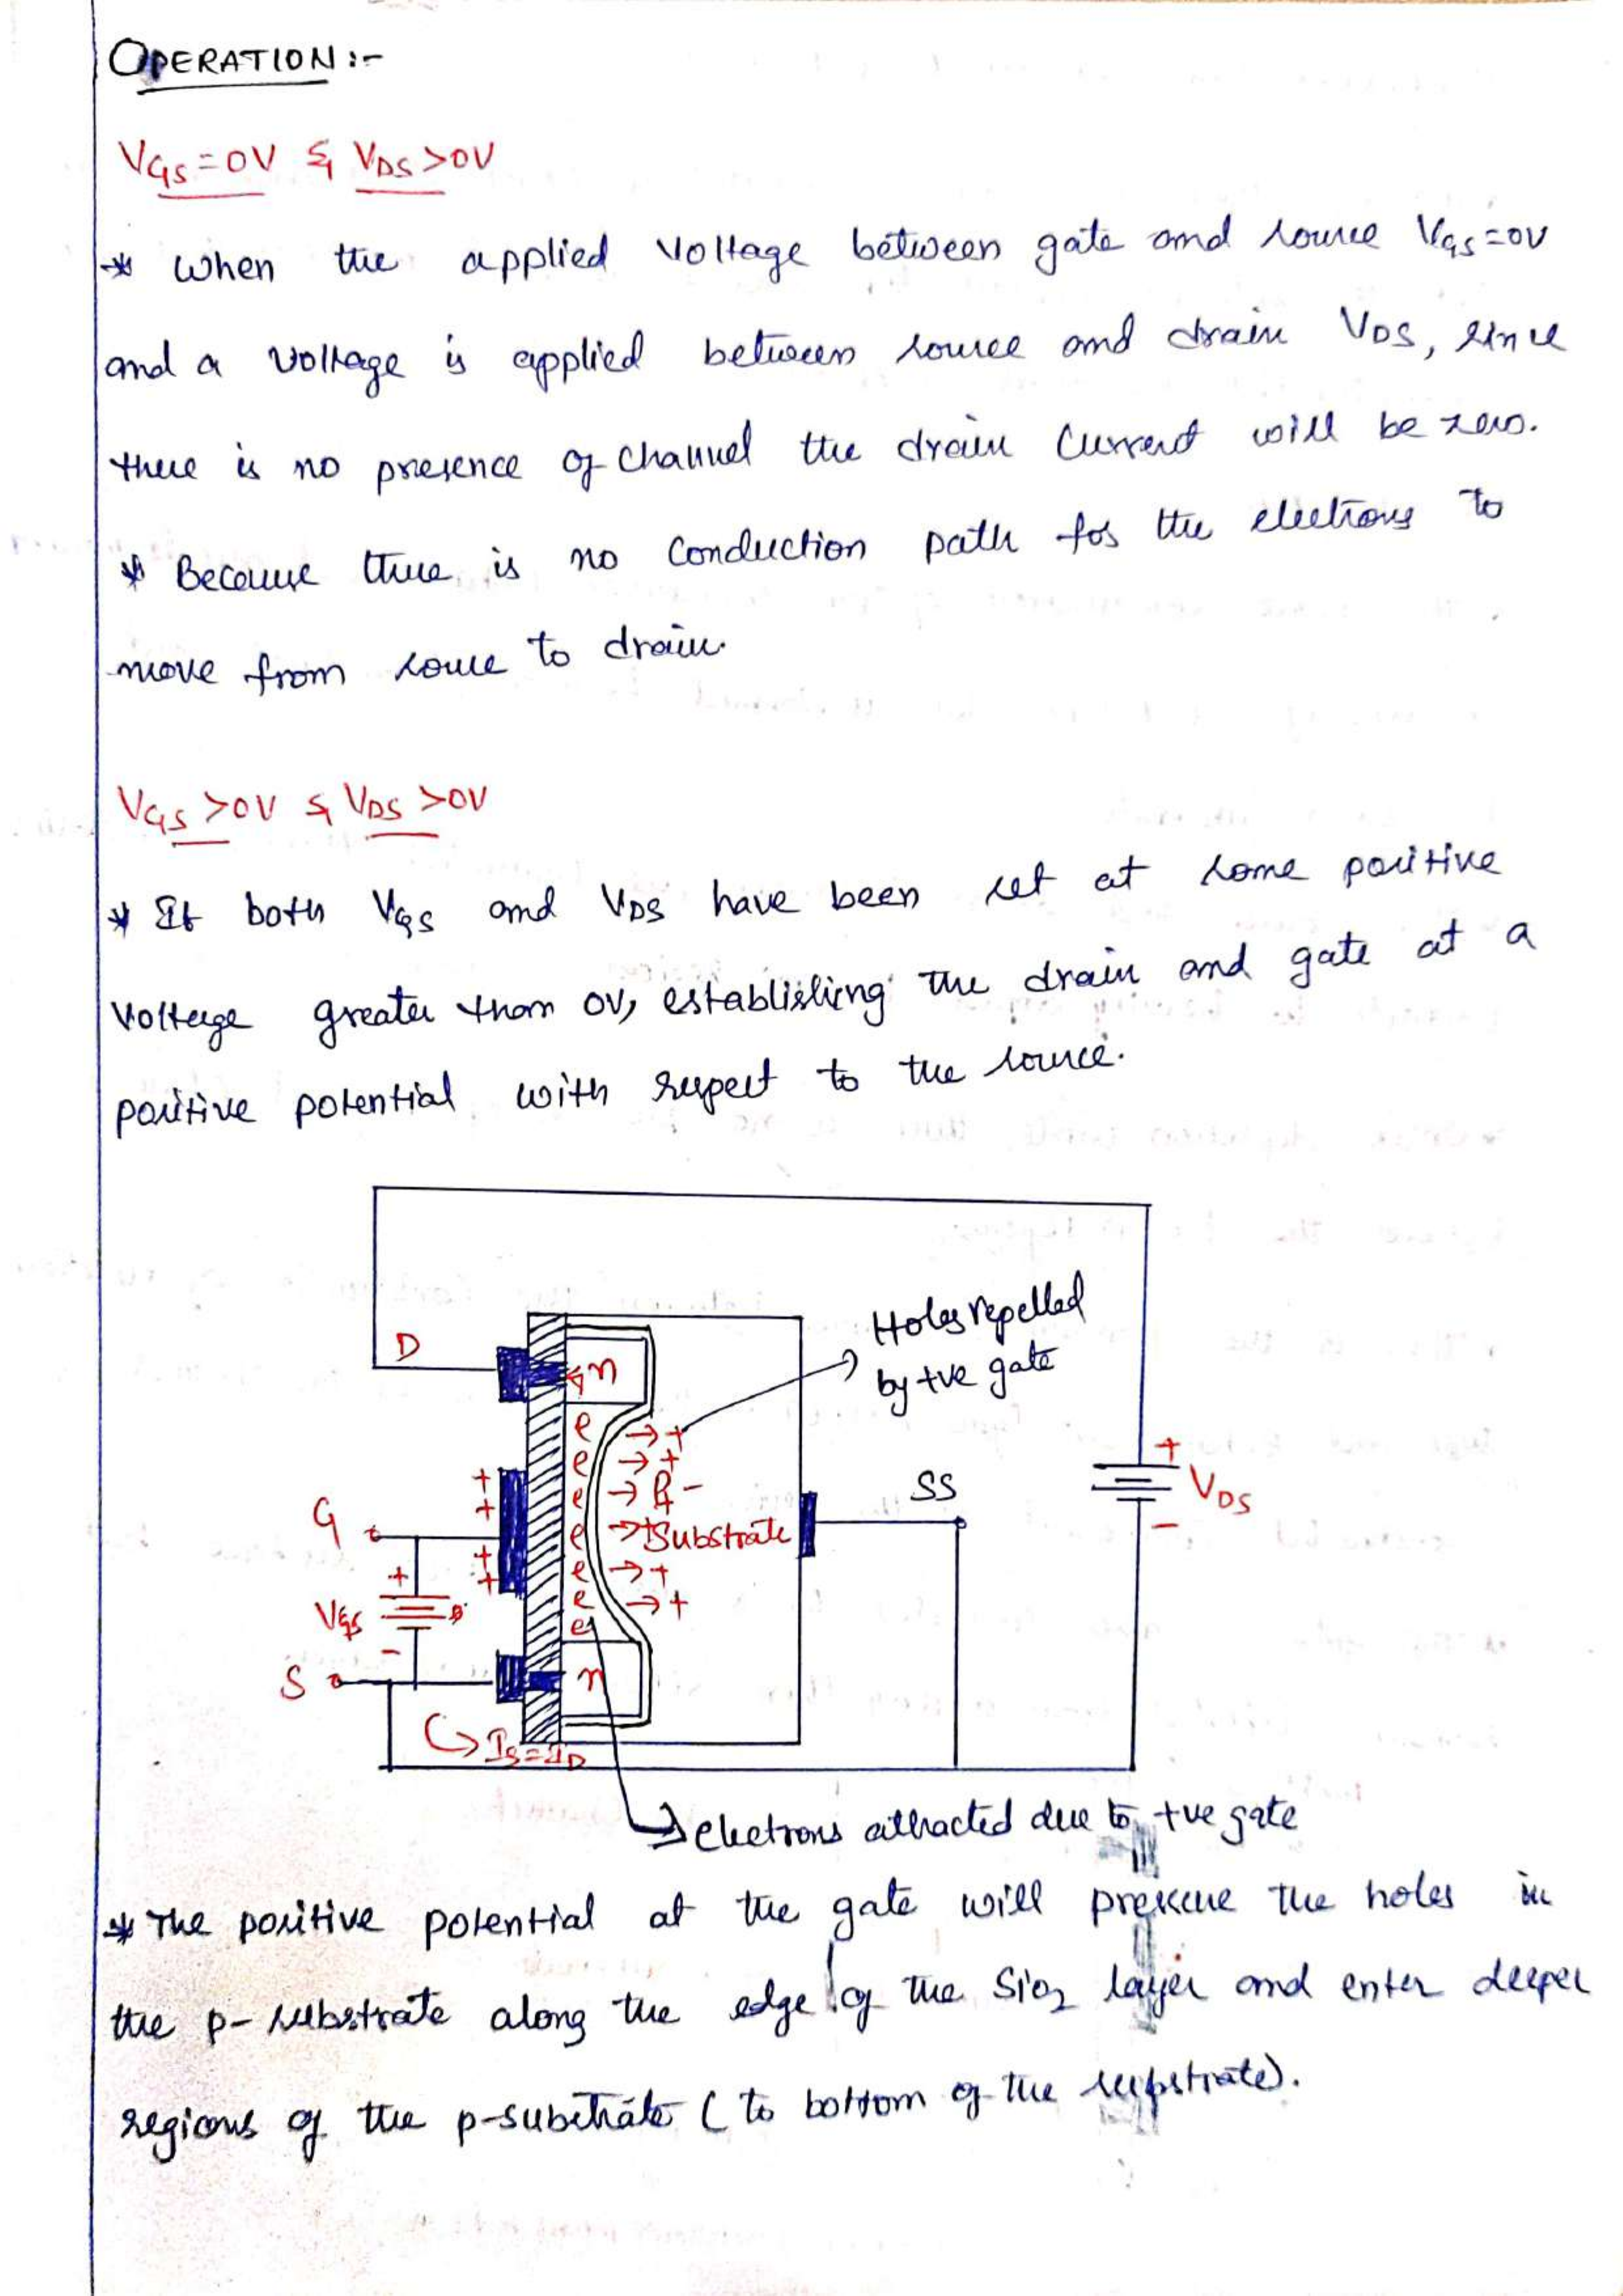 OPERATION :-
VGS = 0V & VDS > 0V
* When the applied voltage between gate and source VGS = 0V
and a voltage is applied between source and drain VDS, since
there is no presence of channel the drain current will be zero.
* Because there is no conduction path for the electrons to
move from source to drain.
VGS > 0V & VDS > 0V
* If both VGS and VDS have been set at some positive
voltage greater than 0V, establishing the drain and gate at a
positive potential with respect to the source.
Holes repelled
by +ve gate
D
n
e → +
e → +
e → P -
e → + Substrate
e → +
e → +
e
+
+
+
+
G
SS
+
VDS
-
+
VGS
-
S
n
IS = ID
electrons attracted due to +ve gate
* The positive potential at the gate will pressure the holes in
the p-substrate along the edge of the SiO2 layer and enter deeper
regions of the p-substrate ( to bottom of the substrate).